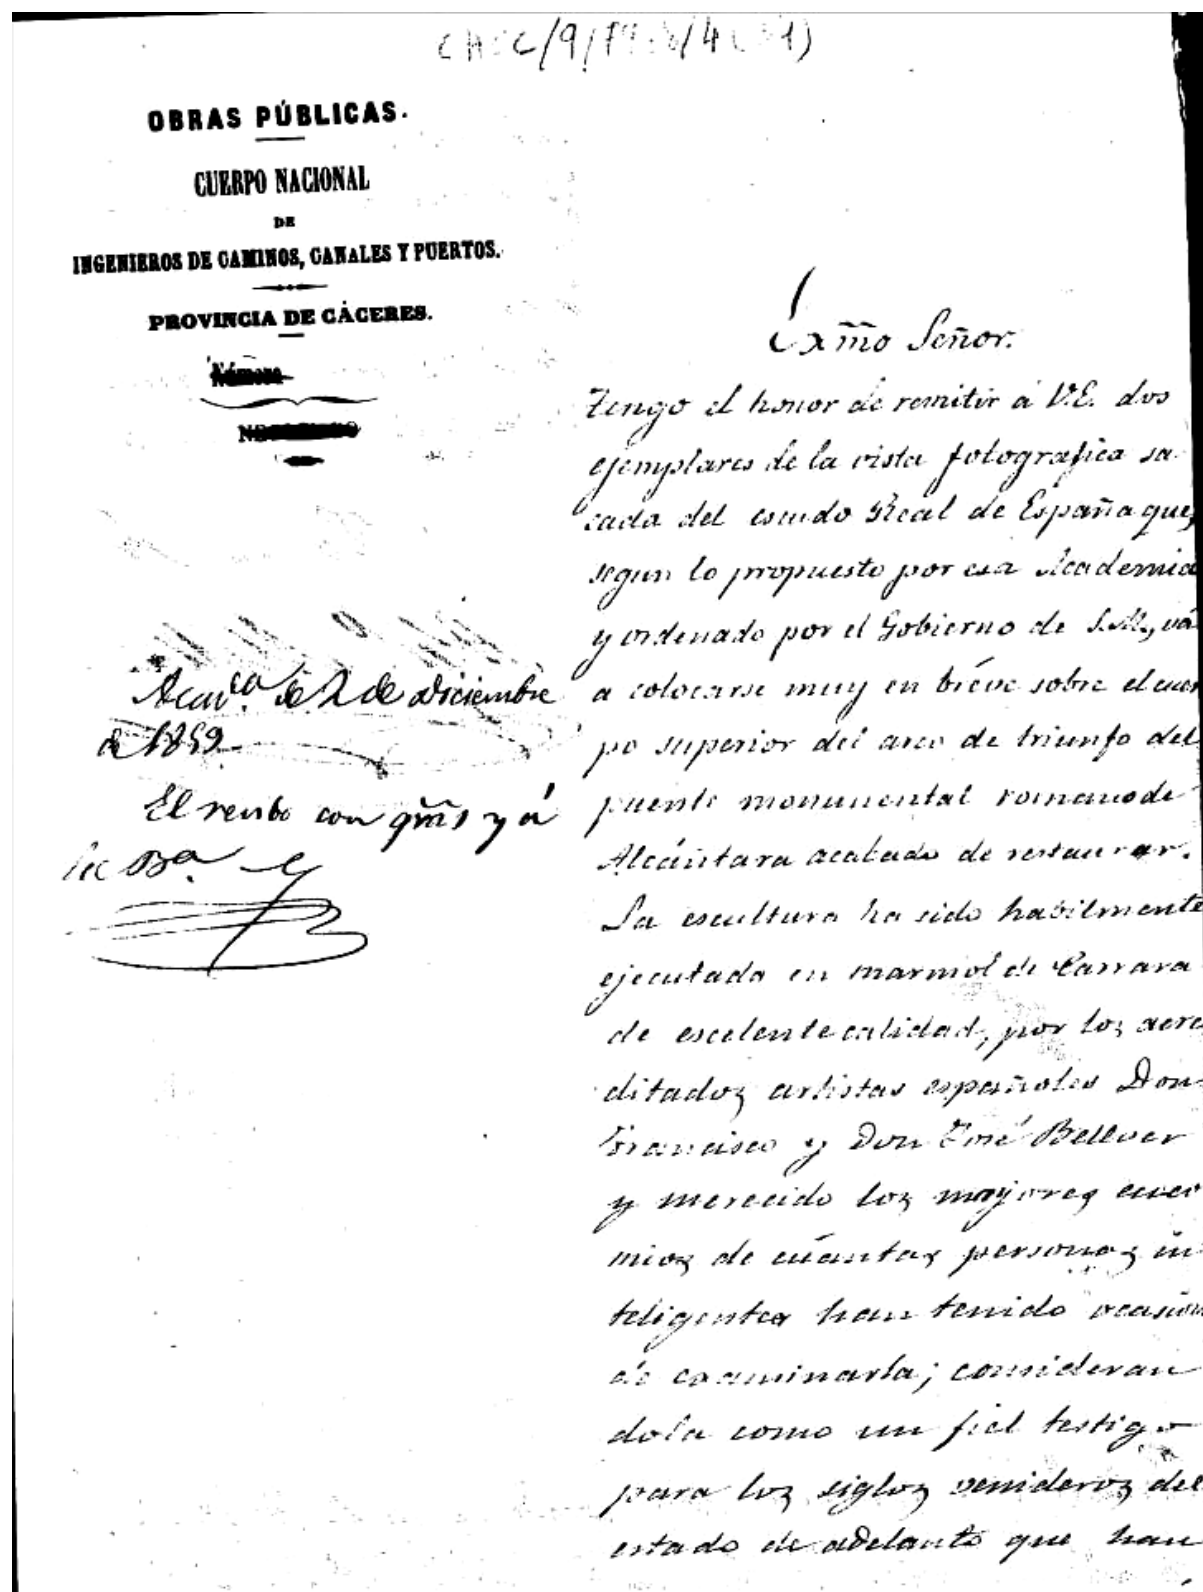 OBRAS PÚBLICAS.
CUERPO NACIONAL
DE
INGENIEROS DE CAMINOS, CANALES Y PUERTOS.
PROVINCIA DE CÁCERES.
Número
Acad.ca de 2 de Diciembre
de 1859.
El recibo con grãs y á
la Bª.
Exm̃o Señor.
Tengo el honor de remitir á V.E. dos
ejemplares de la vista fotografica sa-
cada del escudo Real de España que,
segun lo propuesto por esa Academia
y ordenado por el Gobierno de S.M., vá
a colocarse muy en bréve sobre el cuer
po superior del arco de triunfo del
puente monumental romano de
Alcántara acabado de restaurar.
La escultura ha sido habilmente
ejecutada en marmol de Carrara
de escelente calidad, por los acre
ditados artistas españoles Don
Francisco y Don José Bellver
y merecido los mayores enco
mios de cuantas personas in
teligentes han tenido ocasion
de examinarla; consideran
dola como un fiel testigo
para los siglos venideros del
estado de adelanto que han